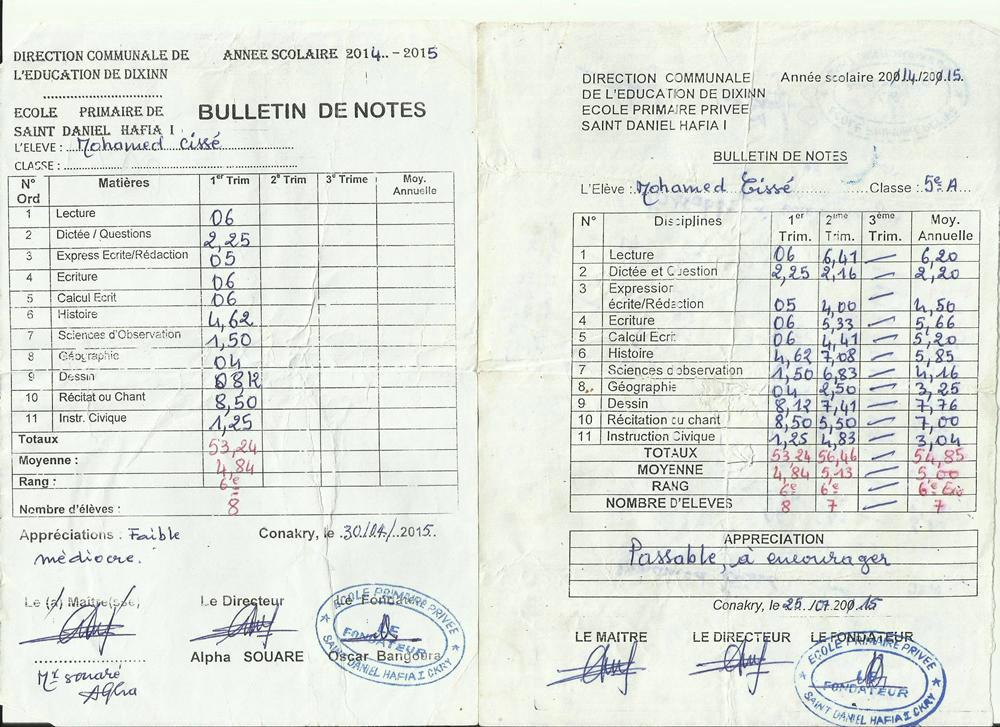 DIRECTION COMMUNALE DE
L'EDUCATION DE DIXINN
ANNEE SCOLAIRE 2014..-2015
ECOLE PRIMAIRE DE
SAINT DANIEL HAFIA I
BULLETIN DE NOTES
L'ELEVE : Mohamed Cissé
CLASSE :
N° Ord Matières 1er Trim 2e Trim 3e Trime Moy. Annuelle
1 Lecture 06
2 Dictée / Questions 2,25
3 Express Ecrite/Rédaction 05
4 Ecriture 06
5 Calcul Ecrit 06
6 Histoire 4,62
7 Sciences d'Observation 1,50
8 Géographie 04
9 Dessin
10 Récitat ou Chant 8,50
11 Instr. Civique 1,25
Totaux 53,24
Moyenne : 4,84
Rang : 6e
Nombre d'élèves : 8
Appréciations : Faible
médiocre.
Conakry, le 30/04/2015.
Le (a) Maitre(sse)
Le Directeur
Le Fondateur
Alpha SOUARE
Oscar Bangoura
Mr Souaré
Alpha
ECOLE PRIMAIRE PRIVEE
LE
FONDATEUR
SAINT DANIEL HAFIA I CKRY
DIRECTION COMMUNALE
DE L'EDUCATION DE DIXINN
ECOLE PRIMAIRE PRIVEE
SAINT DANIEL HAFIA I
Année scolaire 20014/20015.
BULLETIN DE NOTES
L'Elève : Mohamed Cissé Classe : 5e A
N° Disciplines 1er Trim. 2ème Trim. 3ème Trim. Moy. Annuelle
1 Lecture 06 6,41 — 6,20
2 Dictée et Question 2,25 2,16 — 2,20
3 Expression
écrite/Rédaction 05 4,00 — 4,50
4 Ecriture 06 5,33 — 5,66
5 Calcul Ecrit 06 4,41 — 5,20
6 Histoire 4,62 7,08 — 5,85
7 Sciences d'observation 1,50 6,83 — 4,16
8 Géographie 04 2,50 — 3,25
9 Dessin 8,12 7,41 — 7,76
10 Récitation ou chant 8,50 5,50 — 7,00
11 Instruction Civique 1,25 4,83 — 3,04
TOTAUX 53 24 56,46 — 54,85
MOYENNE 4,84 5,13 — 5,00
RANG 6e 6e — 6e
NOMBRE D'ELEVES 8 7 — 7
APPRECIATION
Passable, à encourager
Conakry, le 25/07.200.15
LE MAITRE
LE DIRECTEUR
LE FONDATEUR
ECOLE PRIMAIRE PRIVEE
FONDATEUR
SAINT DANIEL HAFIA I CKRY